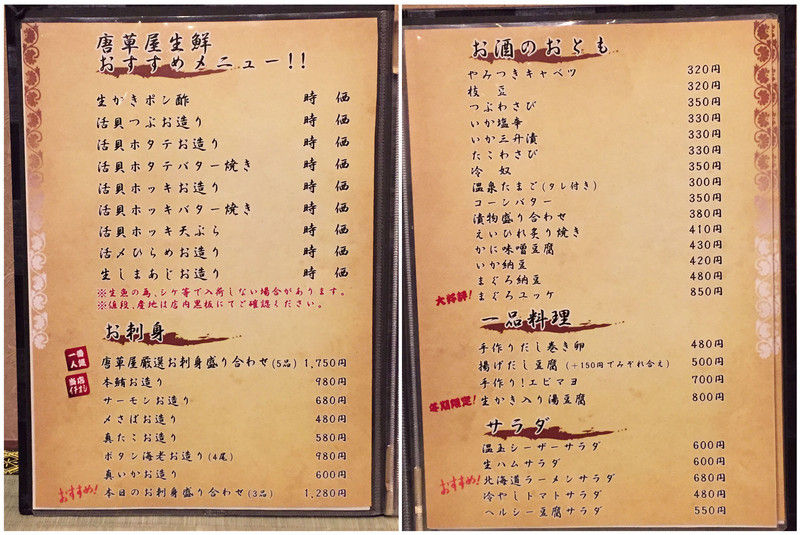 唐草屋生鮮
おすすめメニュー!!
生がきポン酢 時価
活貝つぶお造り 時価
活貝ホタテお造り 時価
活貝ホタテバター焼き 時価
活貝ホッキお造り 時価
活貝ホッキバター焼き 時価
活貝ホッキ天ぷら 時価
活〆ひらめお造り 時価
生しまあじお造り 時価
※生魚の為、シケ等で入荷しない場合があります。
※値段、産地は店内黒板にてご確認ください。
お刺身
一番人気 唐草屋厳選お刺身盛り合わせ(5品) 1,750円
当店イチオシ 本鮪お造り 980円
サーモンお造り 680円
〆さばお造り 480円
真たこお造り 580円
ボタン海老お造り(4尾) 980円
真いかお造り 600円
おすすめ! 本日のお刺身盛り合わせ(3品) 1,280円
お酒のおとも
やみつきキャベツ 320円
枝豆 320円
つぶわさび 350円
いか塩辛 330円
いか三升漬 330円
たこわさび 330円
冷奴 350円
温泉たまご(タレ付き) 300円
コーンバター 350円
漬物盛り合わせ 380円
えいひれ炙り焼き 410円
かに味噌豆腐 430円
いか納豆 420円
まぐろ納豆 480円
大好評! まぐろユッケ 850円
一品料理
手作りだし巻き卵 480円
揚げだし豆腐(+150円でみぞれ合え) 500円
手作り!エビマヨ 700円
冬期限定! 生かき入り湯豆腐 800円
サラダ
温玉シーザーサラダ 600円
生ハムサラダ 600円
おすすめ! 北海道ラーメンサラダ 680円
冷やしトマトサラダ 480円
ヘルシー豆腐サラダ 550円